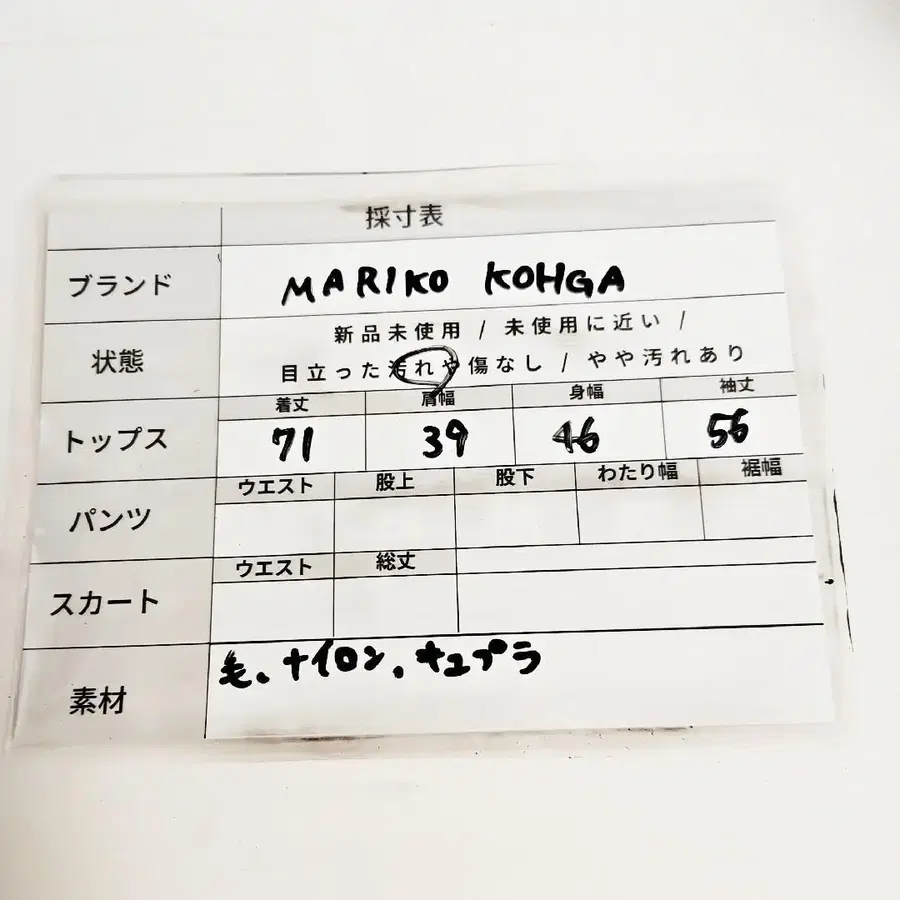 採寸表
ブランド MARIKO KOHGA
新品未使用 / 未使用に近い /
状態
目立った汚れや傷なし / やや汚れあり
着丈 肩幅 身幅 袖丈
トップス 71 39 46 56
ウエスト 股上 股下 わたり幅 裾幅
パンツ
ウエスト 総丈
スカート
毛、ナイロン、キュプラ
素材